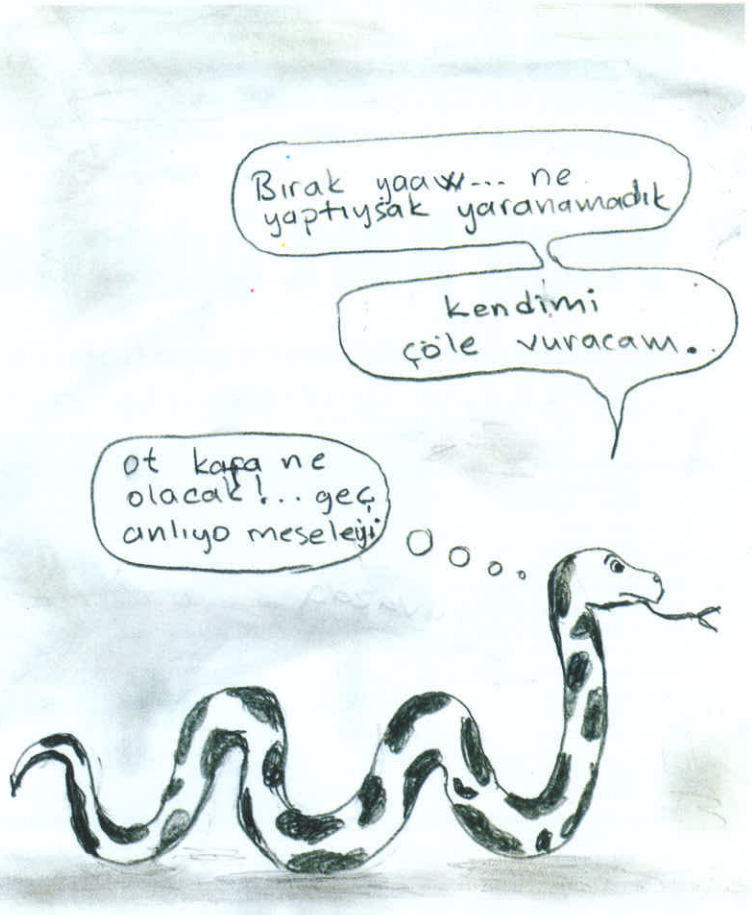 Bırak yaaw... ne
yaptıysak yaranamadık
kendimi
çöle vuracam.
ot kafa ne
olacak!.. geç
anlıyo meseleyi